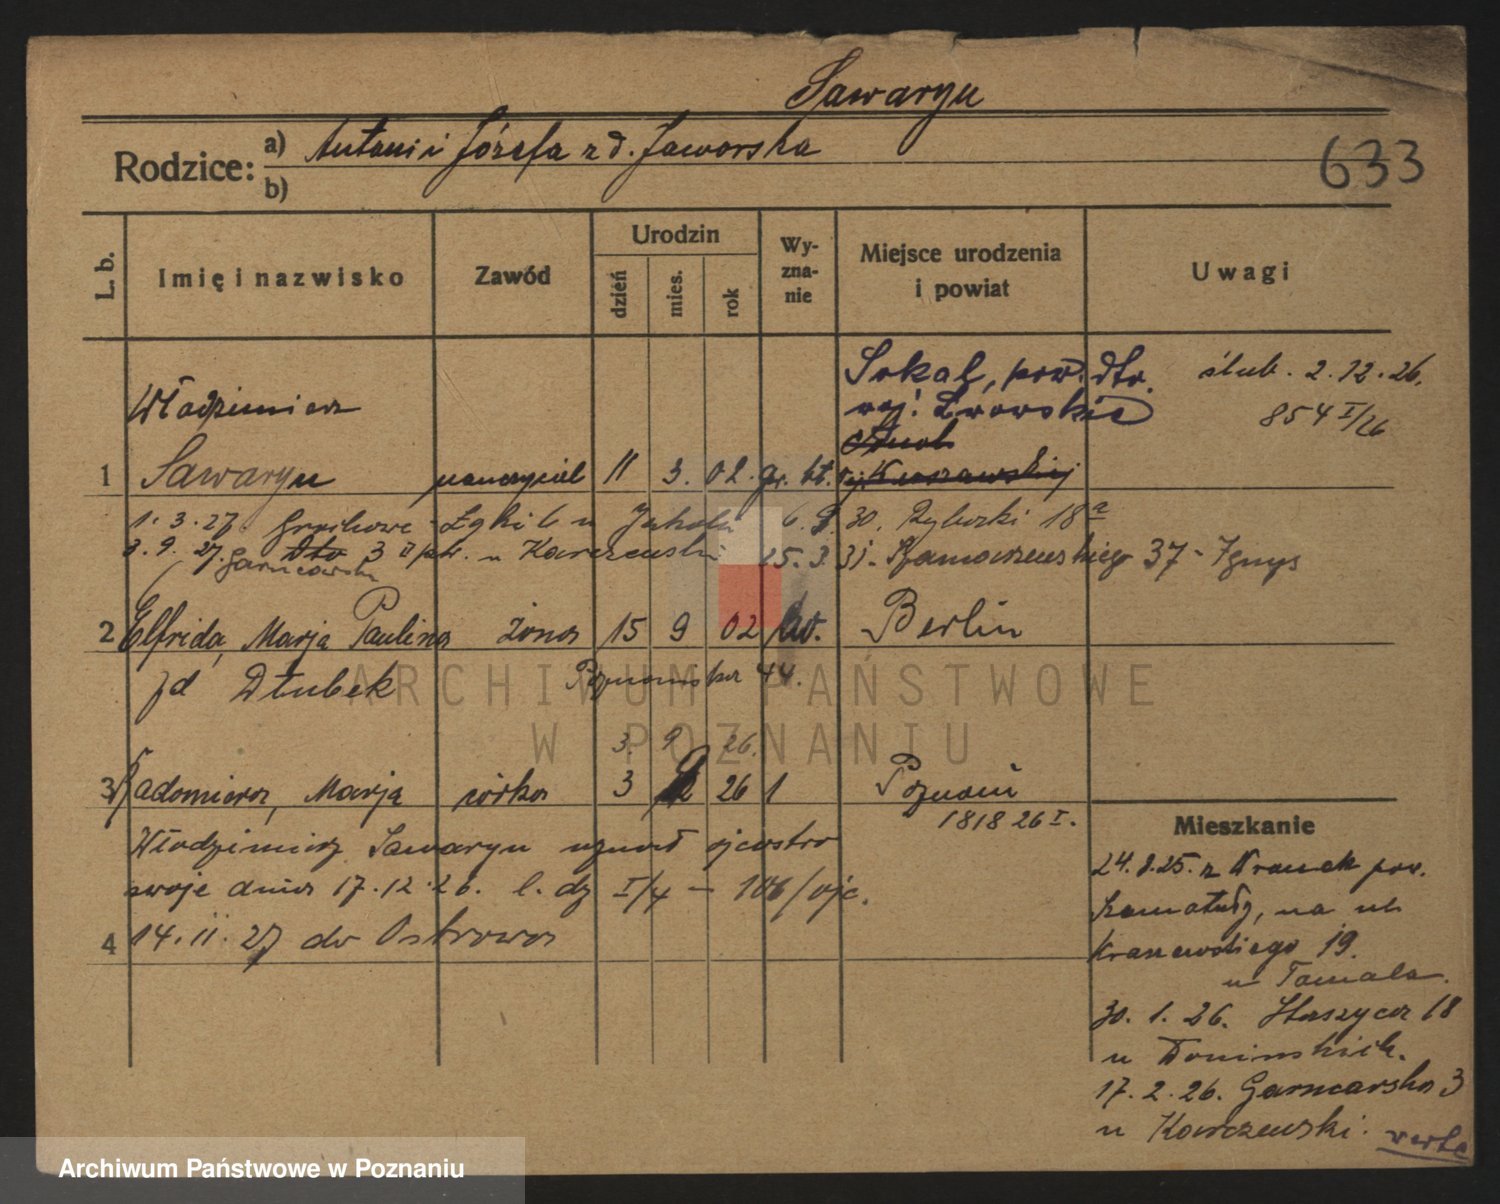 Sawaryn
Rodzice: a) Antoni i Józefa z d. Jaworska
b)
633
L. b.
Imię i nazwisko
Zawód
Urodzin
dzień
mies.
rok
Wy-
zna-
nie
Miejsce urodzenia
i powiat
Uwagi
Sokal, pow. dto.
woj. Lwowskie
ślub. 2.12.26.
854 I/26
Włodzimierz
1 Sawaryn nauczyciel 11 3. 02. gr. kt.
1. 3. 27. Grochowe Łąki 6 u 6. 9. 30. Rybaki 18a
3. 9. 27. Garncarska Dto 3 II ptr. u Karczewski 15. 3. 31. Szamarzewskiego 37 -
2 Elfrida, Marja Paulina żona 15 9 02 Berlin
zd Dłubek Poznańska 44.
3. 9 26.
3 Radomiera, Marja córka 3 26 1 Poznań
1818 26 I.
Włodzimierz Sawaryn uznał ojcostwo
swoje dnia 17.12.26. l. dz I/4 - 106/ojc.
4 14. 11. 27 do Ostrowa
Mieszkanie
24. 8. 25. z Wronek pow.
Szamotuły, na ul.
Kraszewskiego 19.
u Tomala.
30. 1. 26. Staszyca 18
u
17. 2. 26. Garncarska 3
u Karczewski.
verte
ARCHIWUM PAŃSTWOWE
W POZNANIU
Archiwum Państwowe w Poznaniu